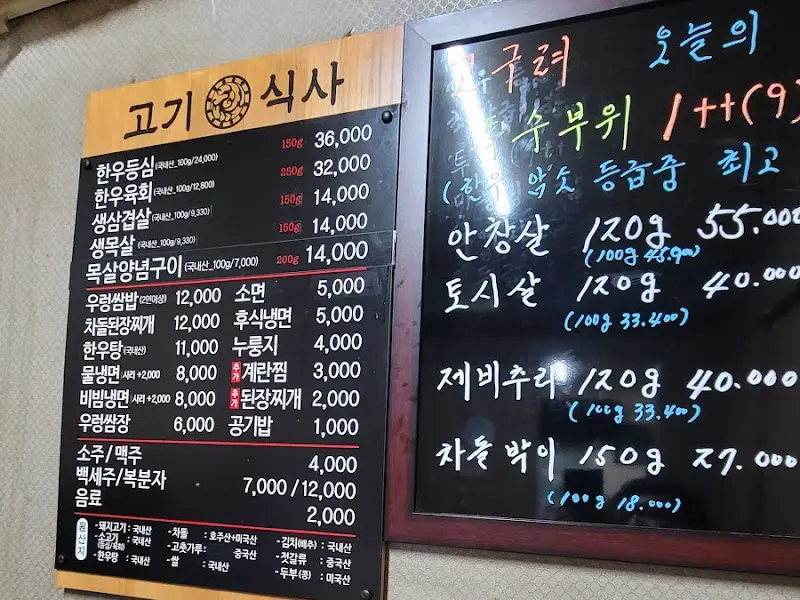 고기 식사
한우등심 (국내산_100g/24,000) 150g 36,000
한우육회 (국내산_100g/12,800) 250g 32,000
생삼겹살 (국내산_100g/9,330) 150g 14,000
생목살 (국내산_100g/9,330) 150g 14,000
목살양념구이 (국내산_100g/7,000) 200g 14,000
우렁쌈밥 (2인이상) 12,000 소면 5,000
차돌된장찌개 12,000 후식냉면 5,000
한우탕 (국내산) 11,000 누룽지 4,000
물냉면 사리 +2,000 8,000 추가 계란찜 3,000
비빔냉면 사리 +2,000 8,000 추가 된장찌개 2,000
우렁쌈장 6,000 공기밥 1,000
소주 / 맥주 4,000
백세주 / 복분자 7,000 / 12,000
음료 2,000
원산지
-돼지고기 : 국내산 -차돌 : 호주산+미국산 -김치(배추) : 국내산
-소고기 (등심/육회) : 국내산 -고춧가루 : 중국산 -젓갈류 : 중국산
-한우탕 : 국내산 -쌀 : 국내산 -두부(콩) : 미국산
고구려 오늘의
수부위 1++(9)
(한우 암소 등급중 최고
안창살 120g 55.000
(100g 45.900)
토시살 120g 40.000
(100g 33.400)
제비추리 120g 40.000
(100g 33.400)
차돌박이 150g 27.000
(100g 18.000)